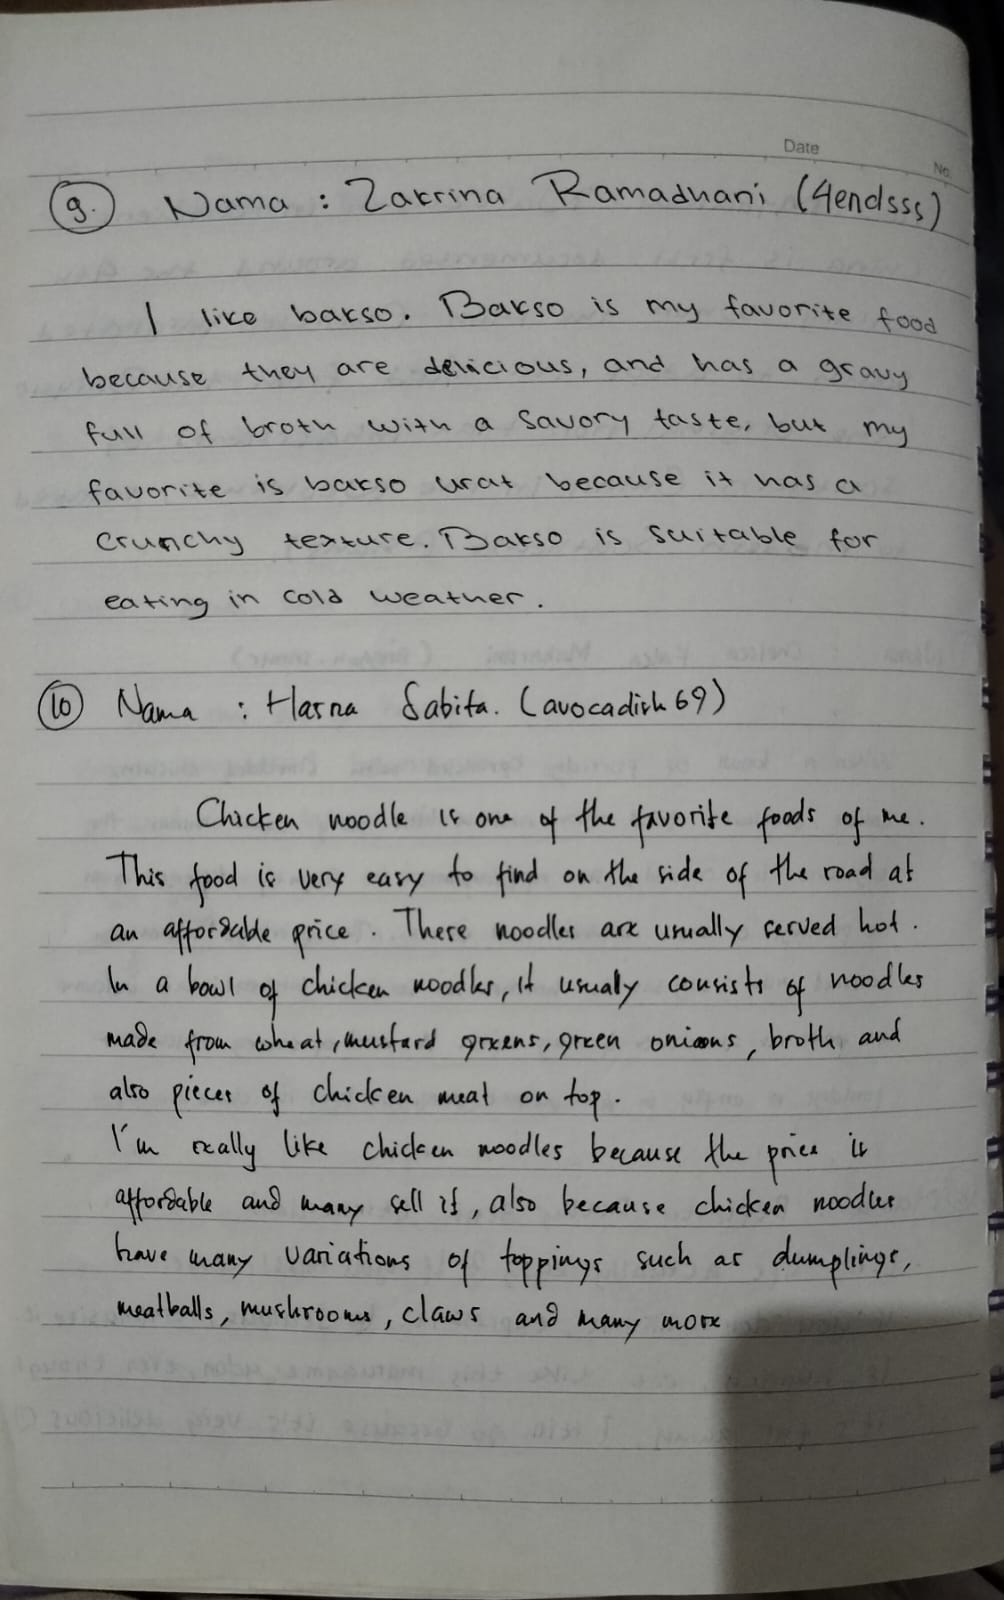 Date
No.
9. Nama : Zakrina Ramadhani (4endsss)
I like bakso. Bakso is my favorite food
because they are delicious, and has a gravy
full of broth with a savory taste, but my
favorite is bakso urat because it has a
crunchy texture. Bakso is suitable for
eating in cold weather.
10 Nama : Hasna Sabita. (avocadish69)
Chicken noodle is one of the favorite foods of me.
This food is very easy to find on the side of the road at
an affordable price. These noodles are usually served hot.
In a bowl of chicken noodles, it usualy consists of noodles
made from wheat, mustard greens, green onions, broth and
also pieces of chicken meat on top.
I'm really like chicken noodles because the price is
affordable and many sell it, also because chicken noodles
have many variations of toppings such as dumplings,
meatballs, mushrooms, claws and many more